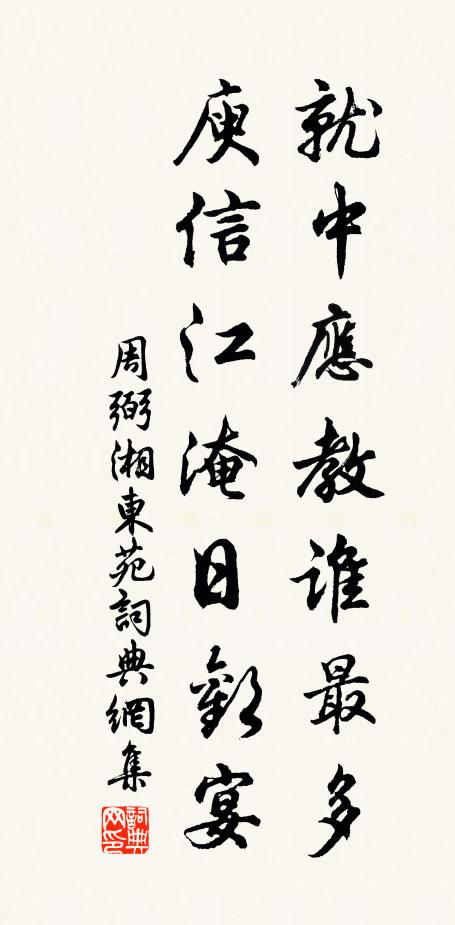 就中應教誰最多
庾信江淹日歡宴
周弼湘東苑詞典網集
詞典网印